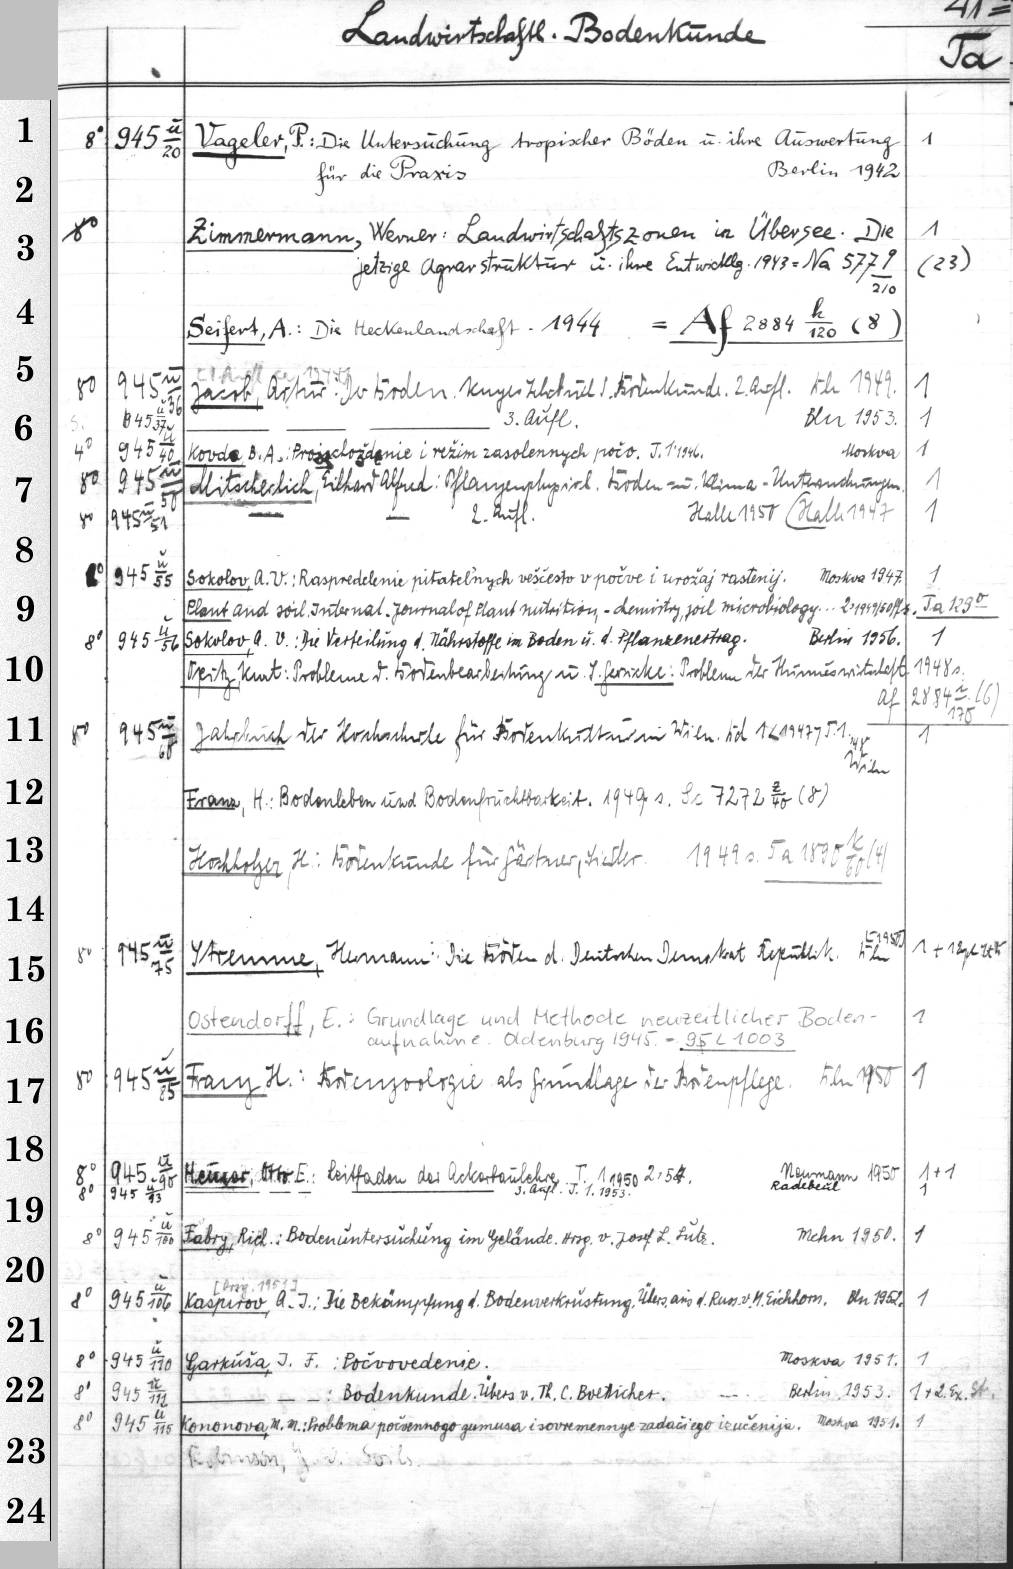 41=
Landwirtschaftl. Bodenkunde Ta
1 8° 945 ü/20 Vageler, P.: Die Untersuchung tropischer Böden u. ihre Auswertung 1
2 für die Praxis Berlin 1942
3 8° Zimmermann, Werner: Landwirtschaftszonen in Übersee. Die 1
jetzige Agrarstruktur u. ihre Entwicklg. 1943 = Na 5779/210 (23)
4 Seifert, A.: Die Heckenlandschaft. 1944 = Af 2884 k/120 (8)
5 80 945 ü/36 Jacob, Artur: Der Boden. 2. Aufl. Bln 1949. 1
6 945 ü/37 3. Aufl. Bln 1953. 1
4° 945 ü/40 Kovda B.A.: Proischoždenie i režim zasolennych počv. T. 1. 1946. Moskva 1
7 80 945 ü/50 Mitscherlich, Eilhard Alfred: Pflanzenphysiol. Boden- u. Klima-Untersuchungen. 1
80 945 ü/51 2. Aufl. Halle 1950 (Halle 1947 1
8
8° 945 ü/55 Sokolov, A.V.: Raspredelenie pitatel'nych veščestv v počve i urožaj rastenij. Moskva 1947. 1
9 Plant and soil. Internat. Journal of Plant nutrition, -chemistry, soil microbiology... 2.1949/50ff s. Ta 129°
8° 945 ü/56 Sokolov, A. V.: Die Verteilung d. Nährstoffe im Boden u. d. Pflanzenertrag. Berlin 1956. 1
10 Opitz, Kurt: Probleme d. Bodenbearbeitung u. S. Gericke: Probleme der Humuswirtschaft 1948 s.
Af 2884 /170 (6)
11 80 945 ü/60 Jahrbuch der Hochschule für Bodenkultur in Wien. Bd 1 <1947> 1
Wien
12 Franz, H.: Bodenleben und Bodenfruchtbarkeit. 1949 s. Sc 7272 z/40 (8)
13 Hochholzer H.: Bodenkunde für Gärtner, Siedler. 1949 s. Ta 1890 k/60 (4)
14
15 80 945 ü/75 Stremme, Hermann: Die Böden d. Deutschen Demokrat Republik. Bln [1950] 1 +
16 Ostendorff, E.: Grundlage und Methode neuzeitlicher Boden- 1
aufnahme. Oldenburg 1945. = 95 L 1003
17 80 945 ü/85 Franz H.: Bodenzoologie als Grundlage der Bodenpflege. Bln 1950 1
18 8° 945 ü/90 Heuser, Otto E.: Leitfaden der Ackerbaulehre. T. 1 1950 2: 54. Neumann 1950 1+1
8° 945 ü/93 3. Aufl. T. 1. 1953. Radebeul 1
19
8° 945 ü/100 Fabry, Rich.: Bodenuntersuchung im Gelände. Hrsg. v. Josef L. Lutz. Mchn 1950. 1
20 [Orig. 1951]
8° 945 ü/106 Kaspirov, A.I.: Die Bekämpfung d. Bodenverkrustung. Übers. aus d. Russ. v. M. Eichhorn. Bln 1952. 1
21
8° 945 ü/110 Garkuša, I. F.: Počvovedenie. Moskva 1951. 1
22 8° 945 ü/112 — — : Bodenkunde. Übers v. Th. C. Boetticher. Berlin 1953. 1 + 2. Ex. St.
8° 945 ü/115 Kononova, M. M.: Problema počvennogo gumusa i sovremennye zadači ego izučenija. Moskva 1951. 1
23
24